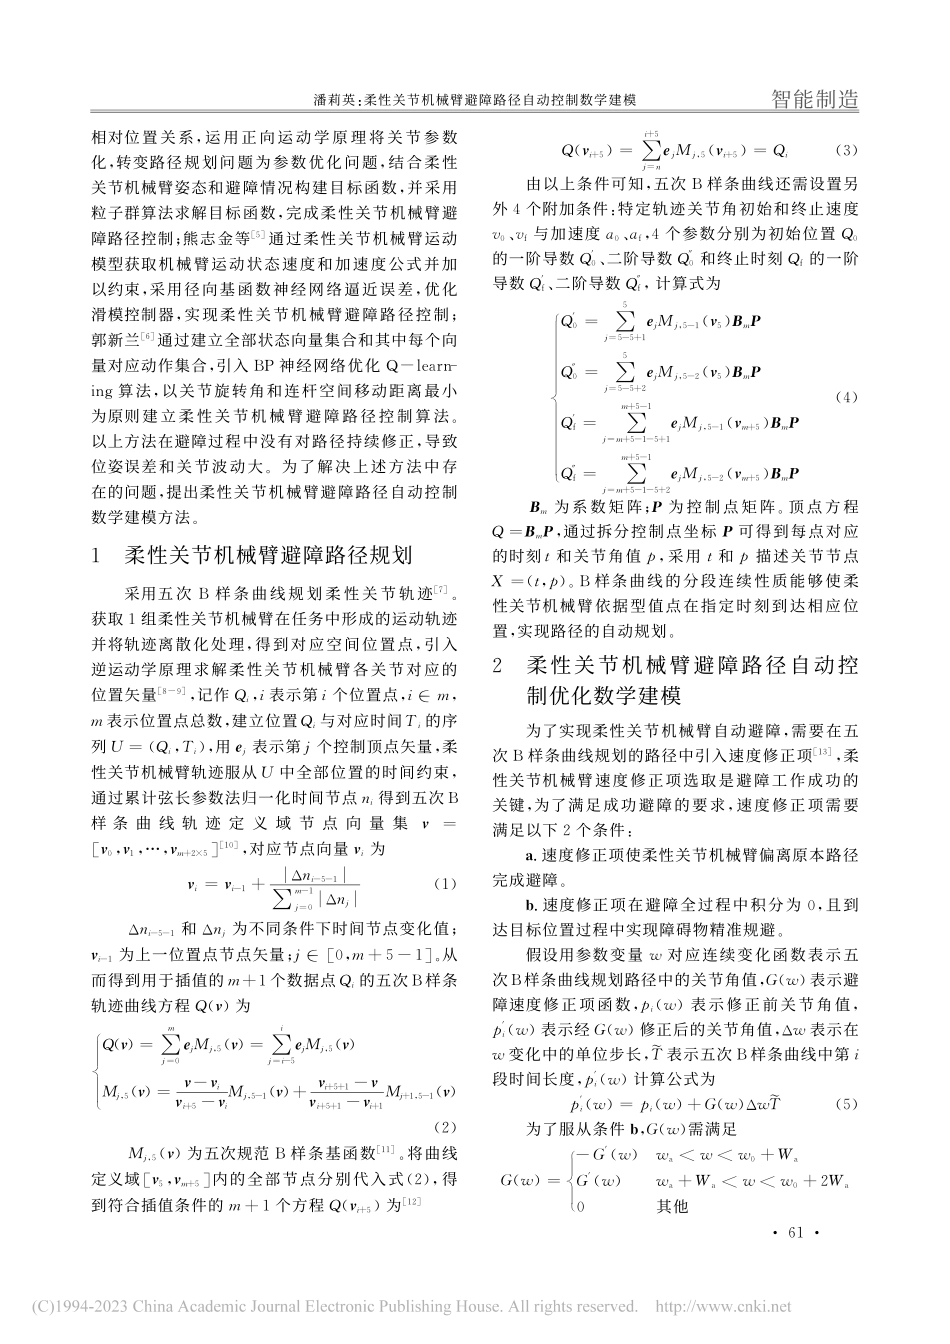 潘莉英:柔性关节机械臂避障路径自动控制数学建模
智能制造
相对位置关系,运用正向运动学原理将关节参数
化,转变路径规划问题为参数优化问题,结合柔性
关节机械臂姿态和避障情况构建目标函数,并采用
粒子群算法求解目标函数,完成柔性关节机械臂避
障路径控制;熊志金等[5]通过柔性关节机械臂运动
模型获取机械臂运动状态速度和加速度公式并加
以约束,采用径向基函数神经网络逼近误差,优化
滑模控制器,实现柔性关节机械臂避障路径控制;
郭新兰[6]通过建立全部状态向量集合和其中每个向
量对应动作集合,引入 BP 神经网络优化 Q-learn-
ing 算法,以关节旋转角和连杆空间移动距离最小
为原则建立柔性关节机械臂避障路径控制算法。
以上方法在避障过程中没有对路径持续修正,导致
位姿误差和关节波动大。为了解决上述方法中存
在的问题,提出柔性关节机械臂避障路径自动控制
数学建模方法。
1 柔性关节机械臂避障路径规划
采用五次 B 样条曲线规划柔性关节轨迹[7]。
获取 1 组柔性关节机械臂在任务中形成的运动轨迹
并将轨迹离散化处理,得到对应空间位置点,引入
逆运动学原理求解柔性关节机械臂各关节对应的
位置矢量[8-9],记作 Q_i,i 表示第 i 个位置点,i∈m,
m 表示位置点总数,建立位置 Q_i 与对应时间 T_i 的序
列 U=(Q_i,T_i),用 e_j 表示第 j 个控制顶点矢量,柔
性关节机械臂轨迹服从 U 中全部位置的时间约束,
通过累计弦长参数法归一化时间节点 n_i 得到五次 B
样条曲线轨迹定义域节点向量集 v =
[v_0,v_1,…,v_{m+2×5}][10],对应节点向量 v_i 为
v_i = v_{i-1} + |Δn_{i-5-1}| / ∑_{j=0}^{m-1}|Δn_j| (1)
Δn_{i-5-1} 和 Δn_j 为不同条件下时间节点变化值;
v_{i-1} 为上一位置点节点矢量;j∈[0,m+5-1]。从
而得到用于插值的 m+1 个数据点 Q_i 的五次 B 样条
轨迹曲线方程 Q(v) 为
Q(v) = ∑_{j=0}^{m} e_j M_{j,5}(v) = ∑_{j=i-5}^{i} e_j M_{j,5}(v)
M_{j,5}(v) = (v-v_i)/(v_{i+5}-v_i) M_{j,5-1}(v) + (v_{i+5+1}-v)/(v_{i+5+1}-v_{i+1}) M_{j+1,5-1}(v)
(2)
M_{j,5}(v) 为五次规范 B 样条基函数[11]。将曲线
定义域[v_5,v_{m+5}]内的全部节点分别代入式(2),得
到符合插值条件的 m+1 个方程 Q(v_{i+5}) 为[12]
Q(v_{i+5}) = ∑_{j=n}^{i+5} e_j M_{j,5}(v_{i+5}) = Q_i (3)
由以上条件可知,五次 B 样条曲线还需设置另
外 4 个附加条件:特定轨迹关节角初始和终止速度
v_0、v_f 与加速度 a_0、a_f,4 个参数分别为初始位置 Q_0
的一阶导数 Q′_0、二阶导数 Q″_0 和终止时刻 Q_f 的一阶
导数 Q′_f、二阶导数 Q″_f,计算式为
Q′_0 = ∑_{j=5-5+1}^{5} e_j M_{j,5-1}(v_5)B_mP
Q″_0 = ∑_{j=5-5+2}^{5} e_j M_{j,5-2}(v_5)B_mP
Q′_f = ∑_{j=m+5-1-5+1}^{m+5-1} e_j M_{j,5-1}(v_{m+5})B_mP
Q″_f = ∑_{j=m+5-1-5+2}^{m+5-1} e_j M_{j,5-2}(v_{m+5})B_mP
(4)
B_m 为系数矩阵;P 为控制点矩阵。顶点方程
Q=B_mP,通过拆分控制点坐标 P 可得到每点对应
的时刻 t 和关节角值 p,采用 t 和 p 描述关节节点
X=(t,p)。B 样条曲线的分段连续性质能够使柔
性关节机械臂依据型值点在指定时刻到达相应位
置,实现路径的自动规划。
2 柔性关节机械臂避障路径自动控
制优化数学建模
为了实现柔性关节机械臂自动避障,需要在五
次 B 样条曲线规划的路径中引入速度修正项[13],柔
性关节机械臂速度修正项选取是避障工作成功的
关键,为了满足成功避障的要求,速度修正项需要
满足以下 2 个条件:
a. 速度修正项使柔性关节机械臂偏离原本路径
完成避障。
b. 速度修正项在避障全过程中积分为 0,且到
达目标位置过程中实现障碍物精准规避。
假设用参数变量 w 对应连续变化函数表示五
次 B 样条曲线规划路径中的关节角值,G(w) 表示避
障速度修正项函数,p_i(w) 表示修正前关节角值,
p′_i(w) 表示经 G(w) 修正后的关节角值,Δw 表示在
w 变化中的单位步长,T̃ 表示五次 B 样条曲线中第 i
段时间长度,p′_i(w) 计算公式为
p′_i(w) = p_i(w)+G(w)ΔwT̃ (5)
为了服从条件 b,G(w)需满足
G(w) = { -G′(w) w_a<w<w_0+W_a
G′(w) w_a+W_a<w<w_0+2W_a
0 其他
· 61 ·
(C)1994-2023 China Academic Journal Electronic Publishing House. All rights reserved. http://www.cnki.net